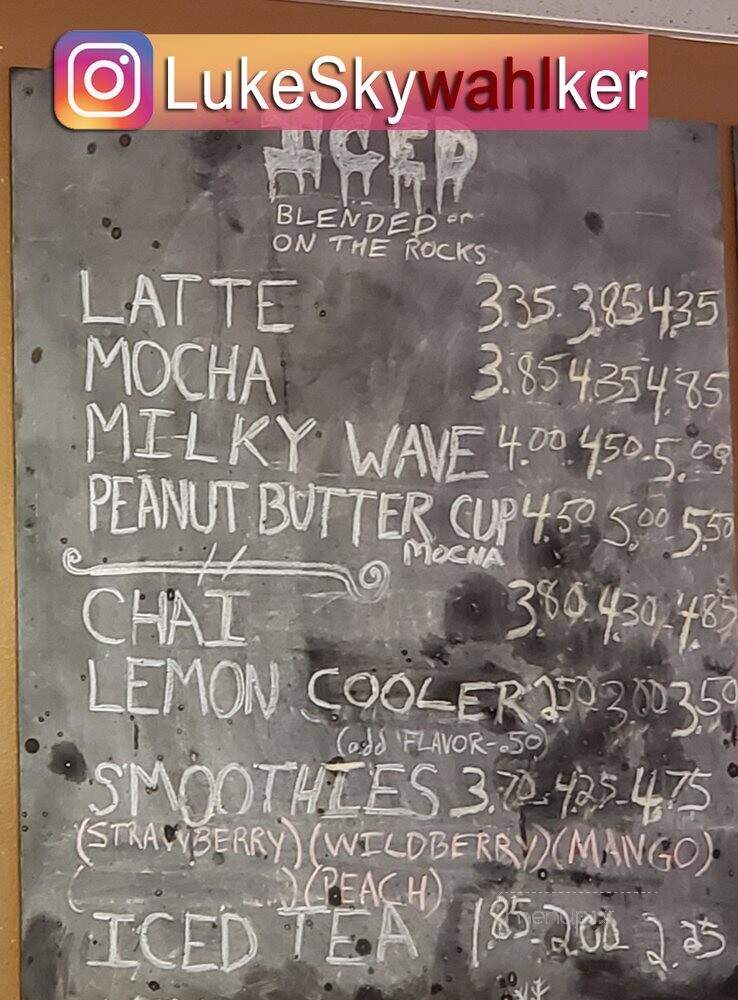 LukeSkywahlker
ICED
BLENDED or
ON THE ROCKS
LATTE 3.35 3.85 4.35
MOCHA 3.85 4.35 4.85
MILKY WAVE 4.00 4.50 5.00
PEANUT BUTTER CUP 4.50 5.00 5.50
MOCHA
CHAI 3.80 4.30 4.85
LEMON COOLER 2.50 3.00 3.50
(add FLAVOR-.50)
SMOOTHIES 3.70 4.25 4.75
(STRAWBERRY) (WILDBERRY) (MANGO)
(PEACH)
ICED TEA 1.85 2.00 2.25